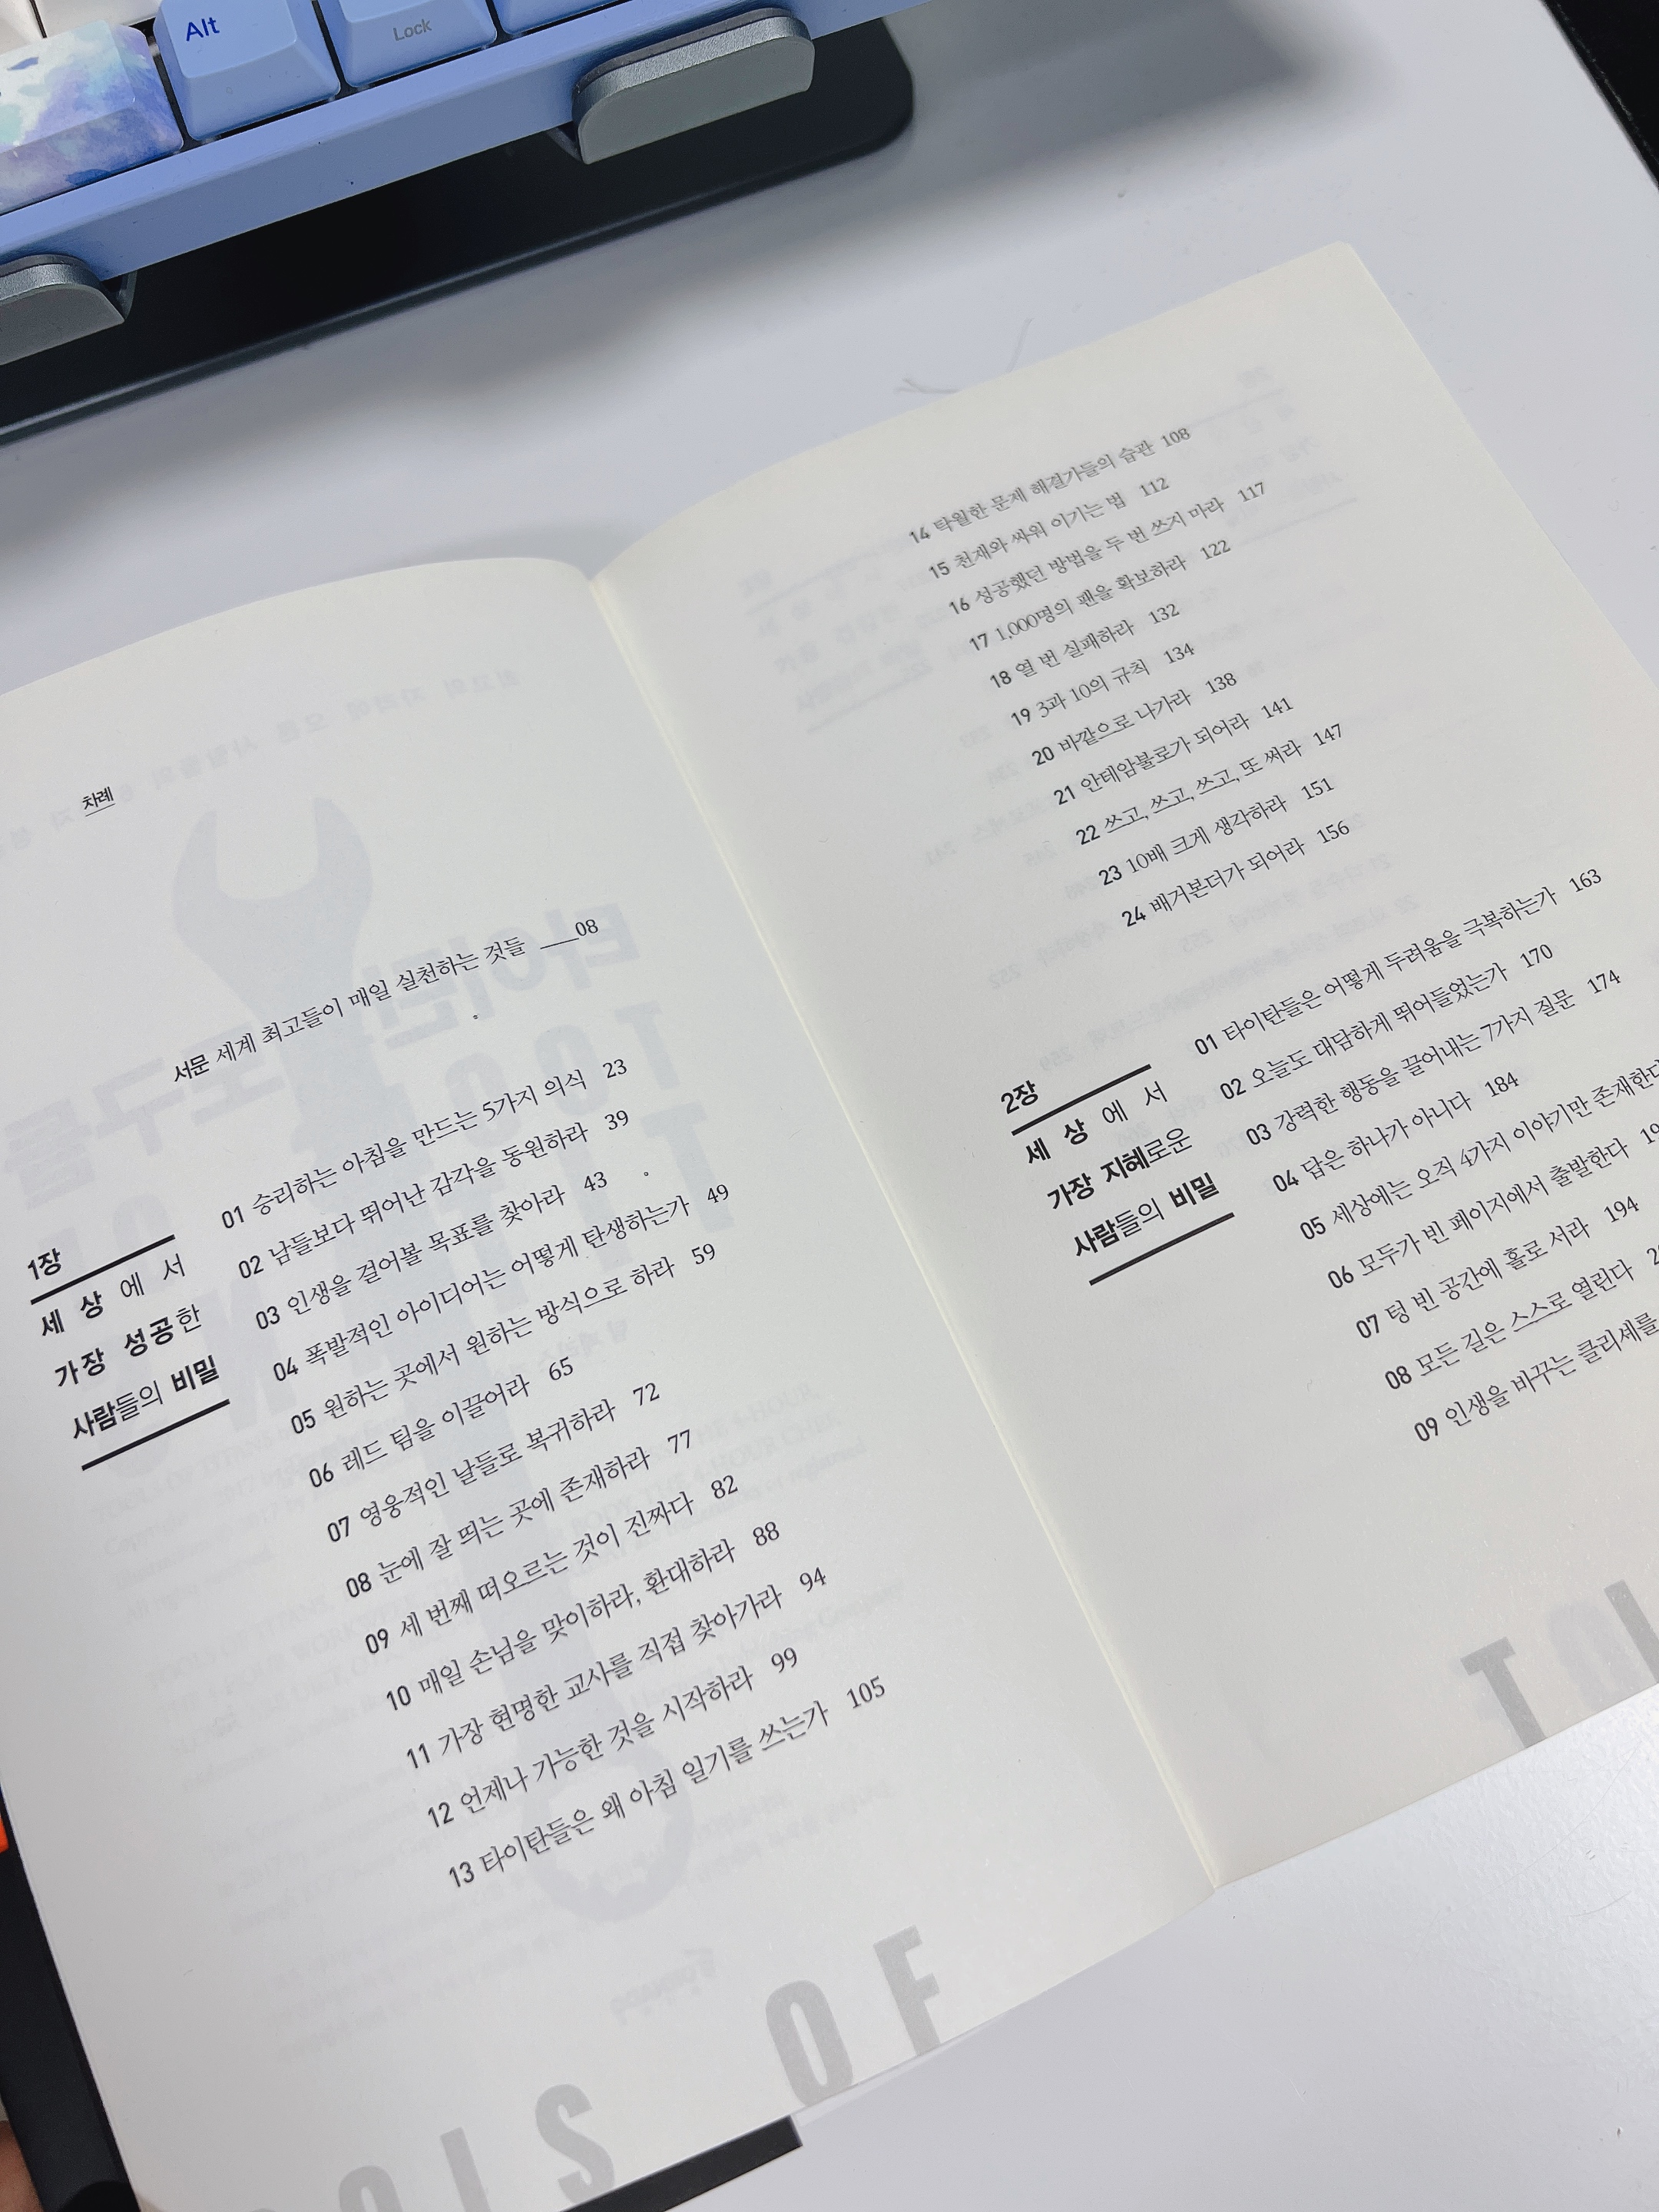 Alt
Lock
차례
서문 세계 최고들이 매일 실천하는 것들 08
1장
세 상 에 서
가장 성공한
사람들의 비밀
01 승리하는 아침을 만드는 5가지 의식 23
02 남들보다 뛰어난 감각을 동원하라 39
03 인생을 걸어볼 목표를 찾아라 43
04 폭발적인 아이디어는 어떻게 탄생하는가 49
05 원하는 곳에서 원하는 방식으로 하라 59
06 레드 팀을 이끌어라 65
07 영웅적인 날들로 복귀하라 72
08 눈에 잘 띄는 곳에 존재하라 77
09 세 번째 떠오르는 것이 진짜다 82
10 매일 손님을 맞이하라, 환대하라 88
11 가장 현명한 교사를 직접 찾아가라 94
12 언제나 가능한 것을 시작하라 99
13 타이탄들은 왜 아침 일기를 쓰는가 105
OLS OF
14 탁월한 문제 해결가들의 습관 108
15 천재와 싸워 이기는 법 112
16 성공했던 방법을 두 번 쓰지 마라 117
17 1,000명의 팬을 확보하라 122
18 열 번 실패하라 132
19 3과 10의 규칙 134
20 바깥으로 나가라 138
21 안테암불로가 되어라 141
22 쓰고, 쓰고, 쓰고, 또 써라 147
23 10배 크게 생각하라 151
24 배거본더가 되어라 156
2장
세 상 에 서
가장 지혜로운
사람들의 비밀
01 타이탄들은 어떻게 두려움을 극복하는가 163
02 오늘도 대담하게 뛰어들었는가 170
03 강력한 행동을 끌어내는 7가지 질문 174
04 답은 하나가 아니다 184
05 세상에는 오직 4가지 이야기만 존재한다
06 모두가 빈 페이지에서 출발한다
07 텅 빈 공간에 홀로 서라 194
08 모든 길은 스스로 열린다
09 인생을 바꾸는 클리셰를
T